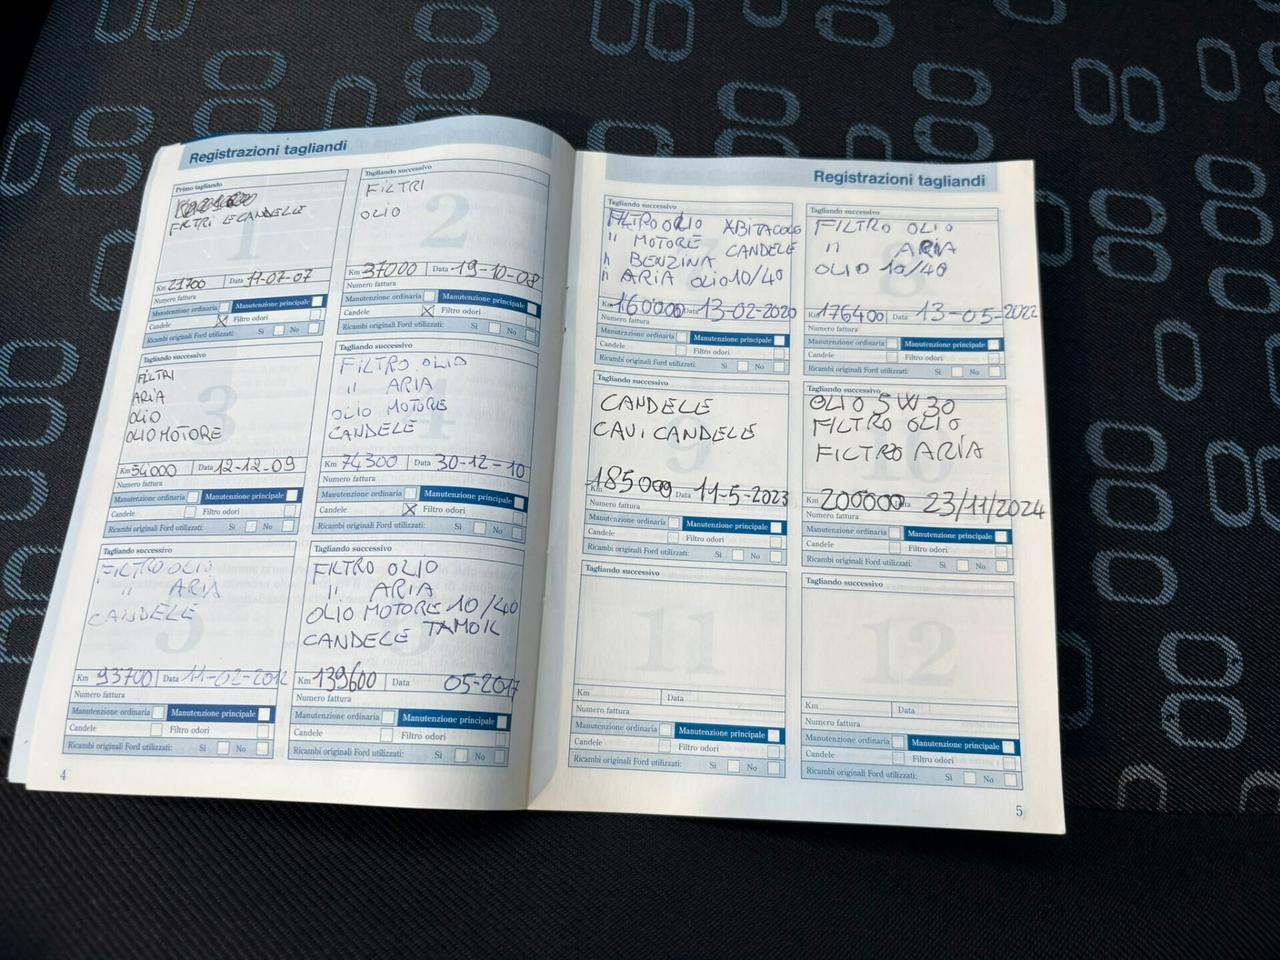 Registrazioni tagliandi
Primo tagliando
FILTRI E CANDELE
Km 21700 Data 11-07-07
Numero fattura
Manutenzione ordinaria Manutenzione principale
Candele Filtro odori
Ricambi originali Ford utilizzati: Si No
Tagliando successivo
2
FILTRI
OLIO
Km 37000 Data 19-10-08
Numero fattura
Manutenzione ordinaria Manutenzione principale
Candele Filtro odori
Ricambi originali Ford utilizzati: Si No
Tagliando successivo
3
FILTRI
ARIA
OLIO
OLIO MOTORE
Km 54000 Data 12-12-09
Numero fattura
Manutenzione ordinaria Manutenzione principale
Candele Filtro odori
Ricambi originali Ford utilizzati: Si No
Tagliando successivo
4
FILTRO OLIO
" ARIA
OLIO MOTORE
CANDELE
Km 74300 Data 30-12-10
Numero fattura
Manutenzione ordinaria Manutenzione principale
Candele Filtro odori
Ricambi originali Ford utilizzati: Si No
Tagliando successivo
5
FILTRO OLIO
" ARIA
CANDELE
Km 93700 Data 11-02-2012
Numero fattura
Manutenzione ordinaria Manutenzione principale
Candele Filtro odori
Ricambi originali Ford utilizzati: Si No
Tagliando successivo
FILTRO OLIO
" ARIA
OLIO MOTORE 10/40
CANDELE TAMOIL
Km 139600 Data 05-2017
Numero fattura
Manutenzione ordinaria Manutenzione principale
Candele Filtro odori
Ricambi originali Ford utilizzati: Si No
4
Registrazioni tagliandi
Tagliando successivo
FILTRO OLIO XBITACOLO
" MOTORE CANDELE
" BENZINA
" ARIA OLIO 10/40
Km 160000 Data 13-02-2020
Numero fattura
Manutenzione ordinaria Manutenzione principale
Candele Filtro odori
Ricambi originali Ford utilizzati: Si No
Tagliando successivo
8
FILTRO OLIO
" ARIA
OLIO 10/40
Km 176400 Data 13-05-2022
Numero fattura
Manutenzione ordinaria Manutenzione principale
Candele Filtro odori
Ricambi originali Ford utilizzati: Si No
Tagliando successivo
9
CANDELE
CAVI CANDELE
Km 185000 Data 11-5-2023
Numero fattura
Manutenzione ordinaria Manutenzione principale
Candele Filtro odori
Ricambi originali Ford utilizzati: Si No
Tagliando successivo
10
OLIO 5W30
FILTRO OLIO
FILTRO ARIA
Km 200000 23/11/2024
Numero fattura
Manutenzione ordinaria Manutenzione principale
Candele Filtro odori
Ricambi originali Ford utilizzati: Si No
Tagliando successivo
11
Km Data
Numero fattura
Manutenzione ordinaria Manutenzione principale
Candele Filtro odori
Ricambi originali Ford utilizzati: Si No
Tagliando successivo
12
Km Data
Numero fattura
Manutenzione ordinaria Manutenzione principale
Candele Filtro odori
Ricambi originali Ford utilizzati: Si No
5